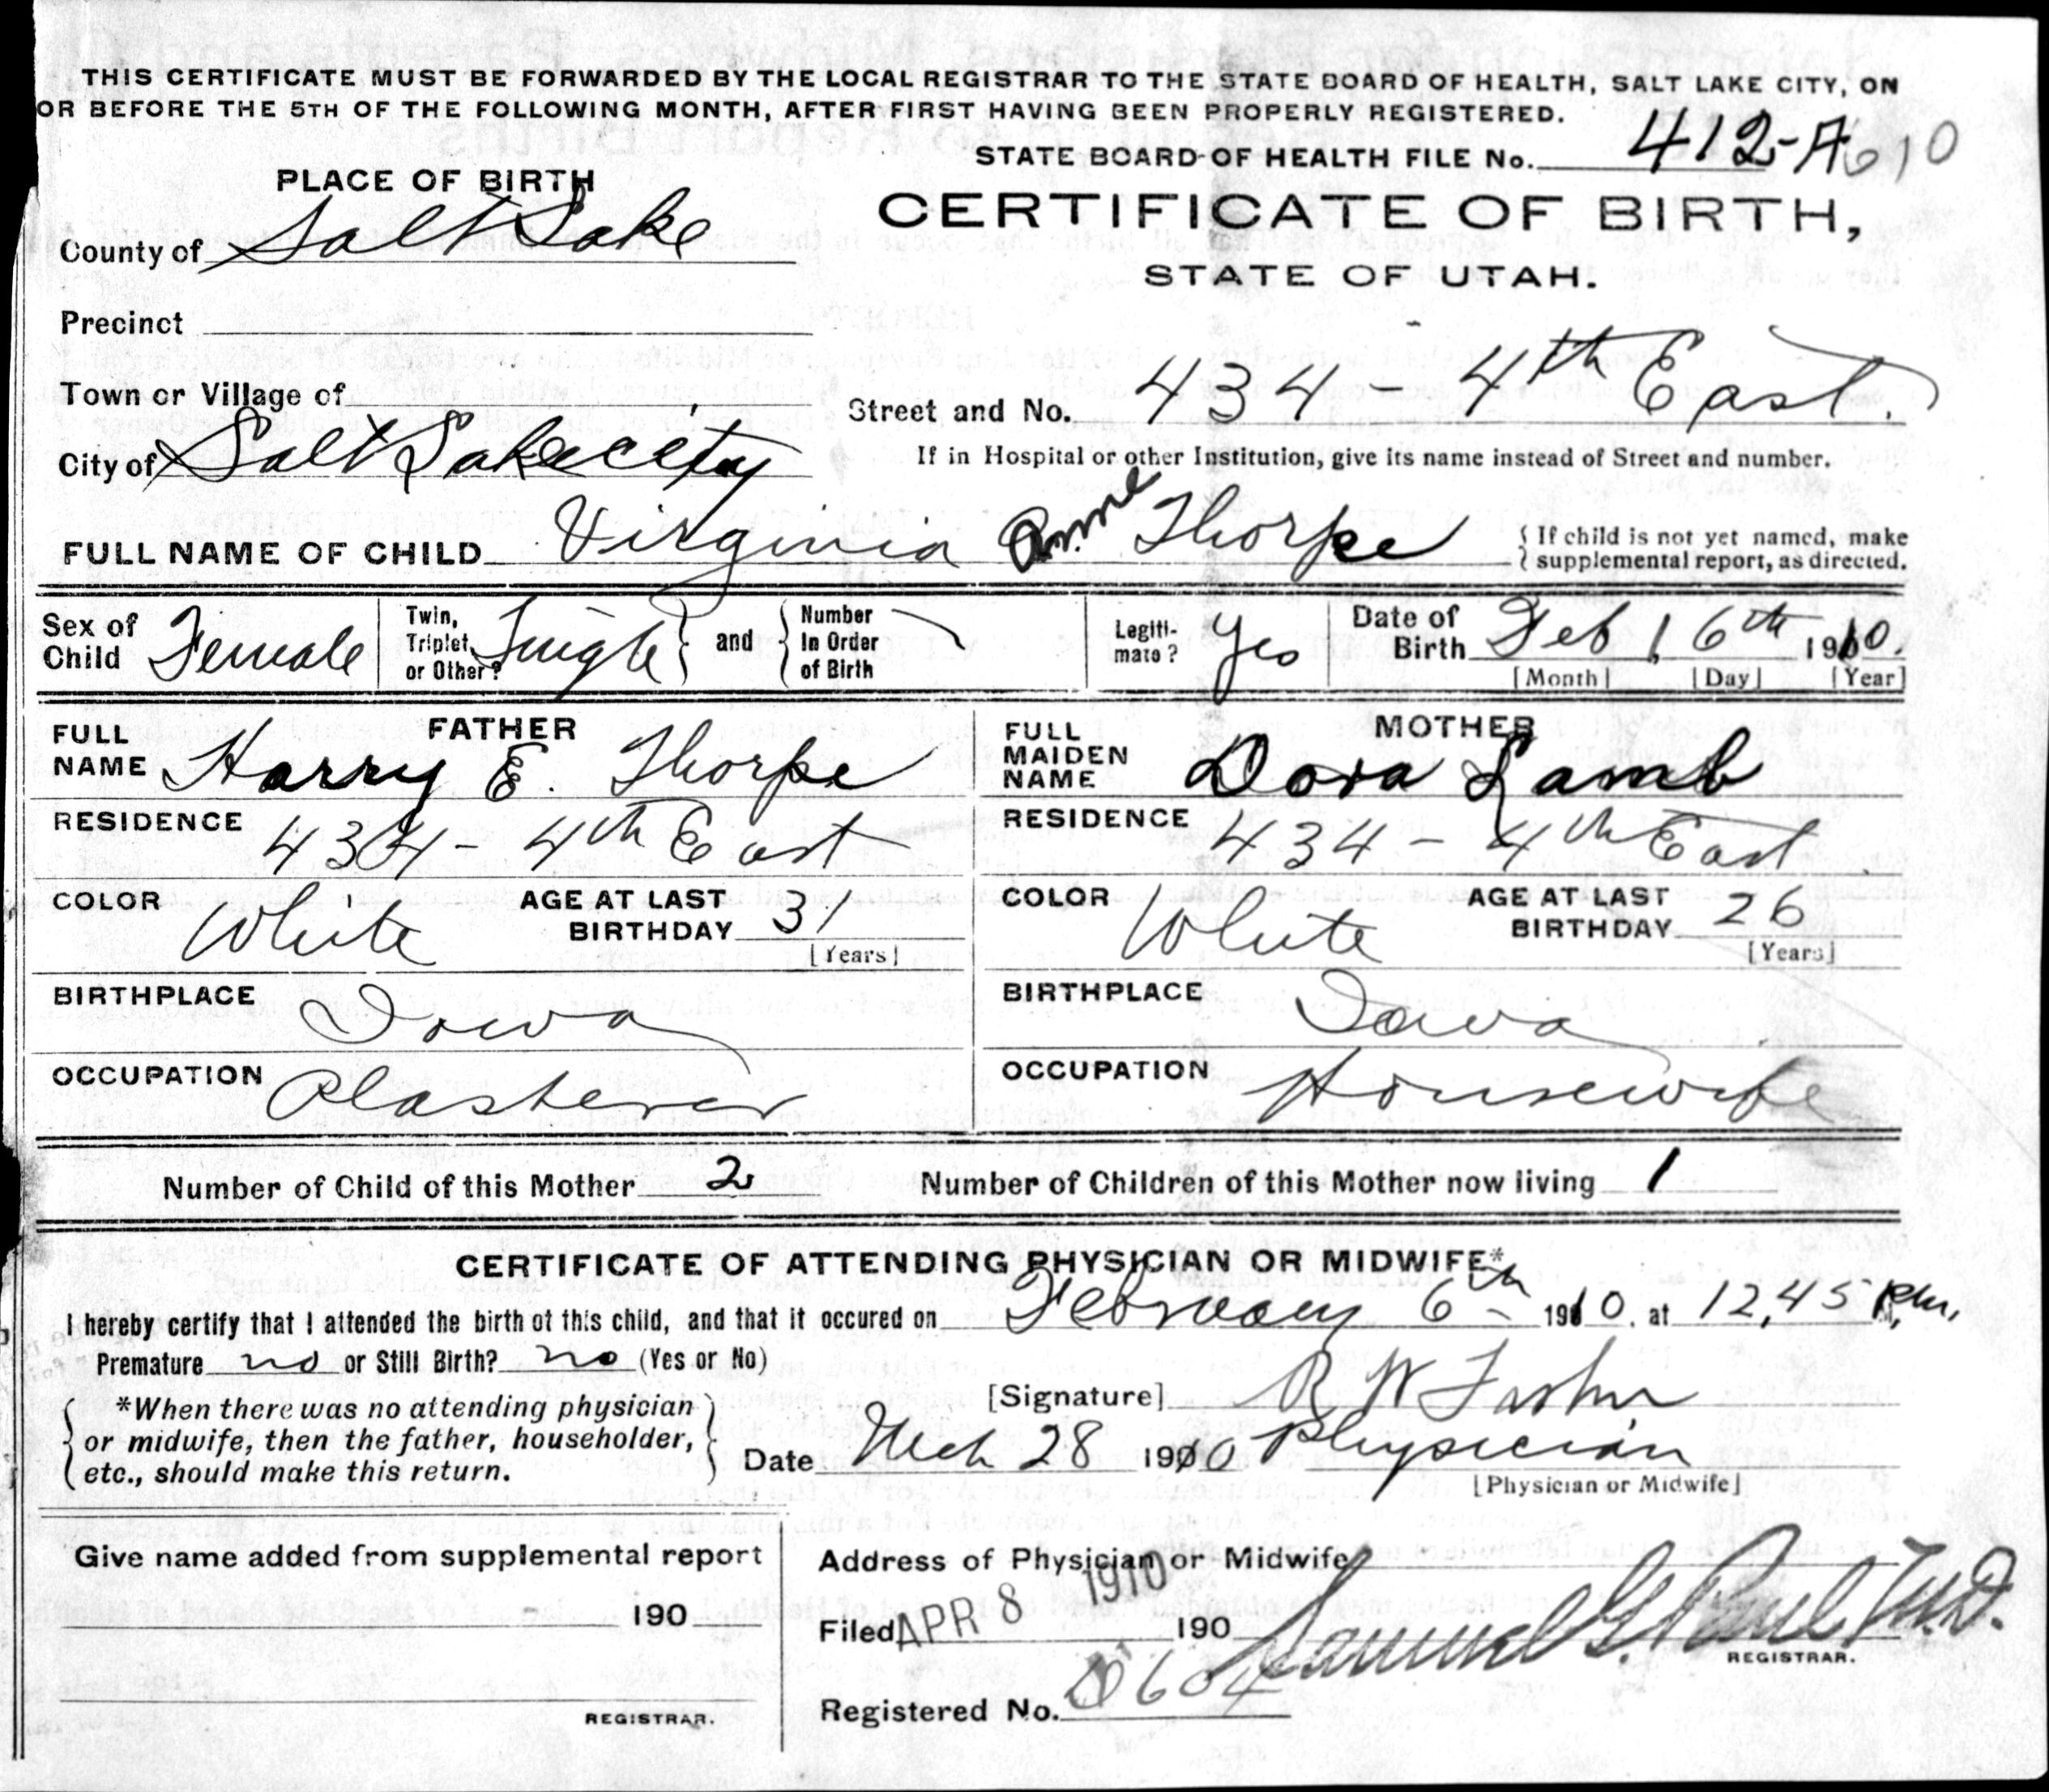 THIS CERTIFICATE MUST BE FORWARDED BY THE LOCAL REGISTRAR TO THE STATE BOARD OF HEALTH, SALT LAKE CITY, ON
OR BEFORE THE 5TH OF THE FOLLOWING MONTH, AFTER FIRST HAVING BEEN PROPERLY REGISTERED.
STATE BOARD OF HEALTH FILE No. 412-A 610
PLACE OF BIRTH
CERTIFICATE OF BIRTH,
STATE OF UTAH.
County of Salt Lake
Precinct
Town or Village of
Street and No. 434 - 4th East.
City of Salt Lake city
If in Hospital or other Institution, give its name instead of Street and number.
FULL NAME OF CHILD Virginia Anne Thorpe
{ If child is not yet named, make
supplemental report, as directed.
Sex of Child Female
Twin, Triplet, or Other? Single } and { Number In Order of Birth
Legiti-mate? Yes
Date of Birth Feb 6th 1910.
[Month] [Day] [Year]
FATHER
FULL NAME Harry E. Thorpe
RESIDENCE 434 - 4th East
COLOR White AGE AT LAST BIRTHDAY 31
[Years]
BIRTHPLACE Iowa
OCCUPATION Plasterer
MOTHER
FULL MAIDEN NAME Dora Lamb
RESIDENCE 434 - 4th East
COLOR White AGE AT LAST BIRTHDAY 26
[Years]
BIRTHPLACE Iowa
OCCUPATION Housewife
Number of Child of this Mother 2 Number of Children of this Mother now living 1
CERTIFICATE OF ATTENDING PHYSICIAN OR MIDWIFE*
I hereby certify that I attended the birth of this child, and that it occured on February 6th 1910. at 12,45 P.M.
Premature no or Still Birth? no (Yes or No)
[Signature] R W
*When there was no attending physician
or midwife, then the father, householder,
etc., should make this return.
Date Mch 28 1910 Physician
[Physician or Midwife]
Give name added from supplemental report
190
REGISTRAR.
Address of Physician or Midwife
Filed APR 8 1910 190 Samuel G. Paul, M.D.
REGISTRAR.
Registered No. 604